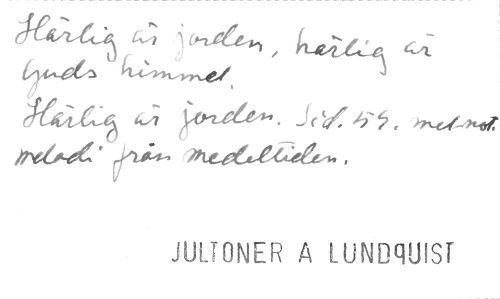 Härlig är jorden, härlig är
Guds himmel.
Härlig är jorden. Sid. 59. mel.not.
melodi från medeltiden.
JULTONER A LUNDQUIST